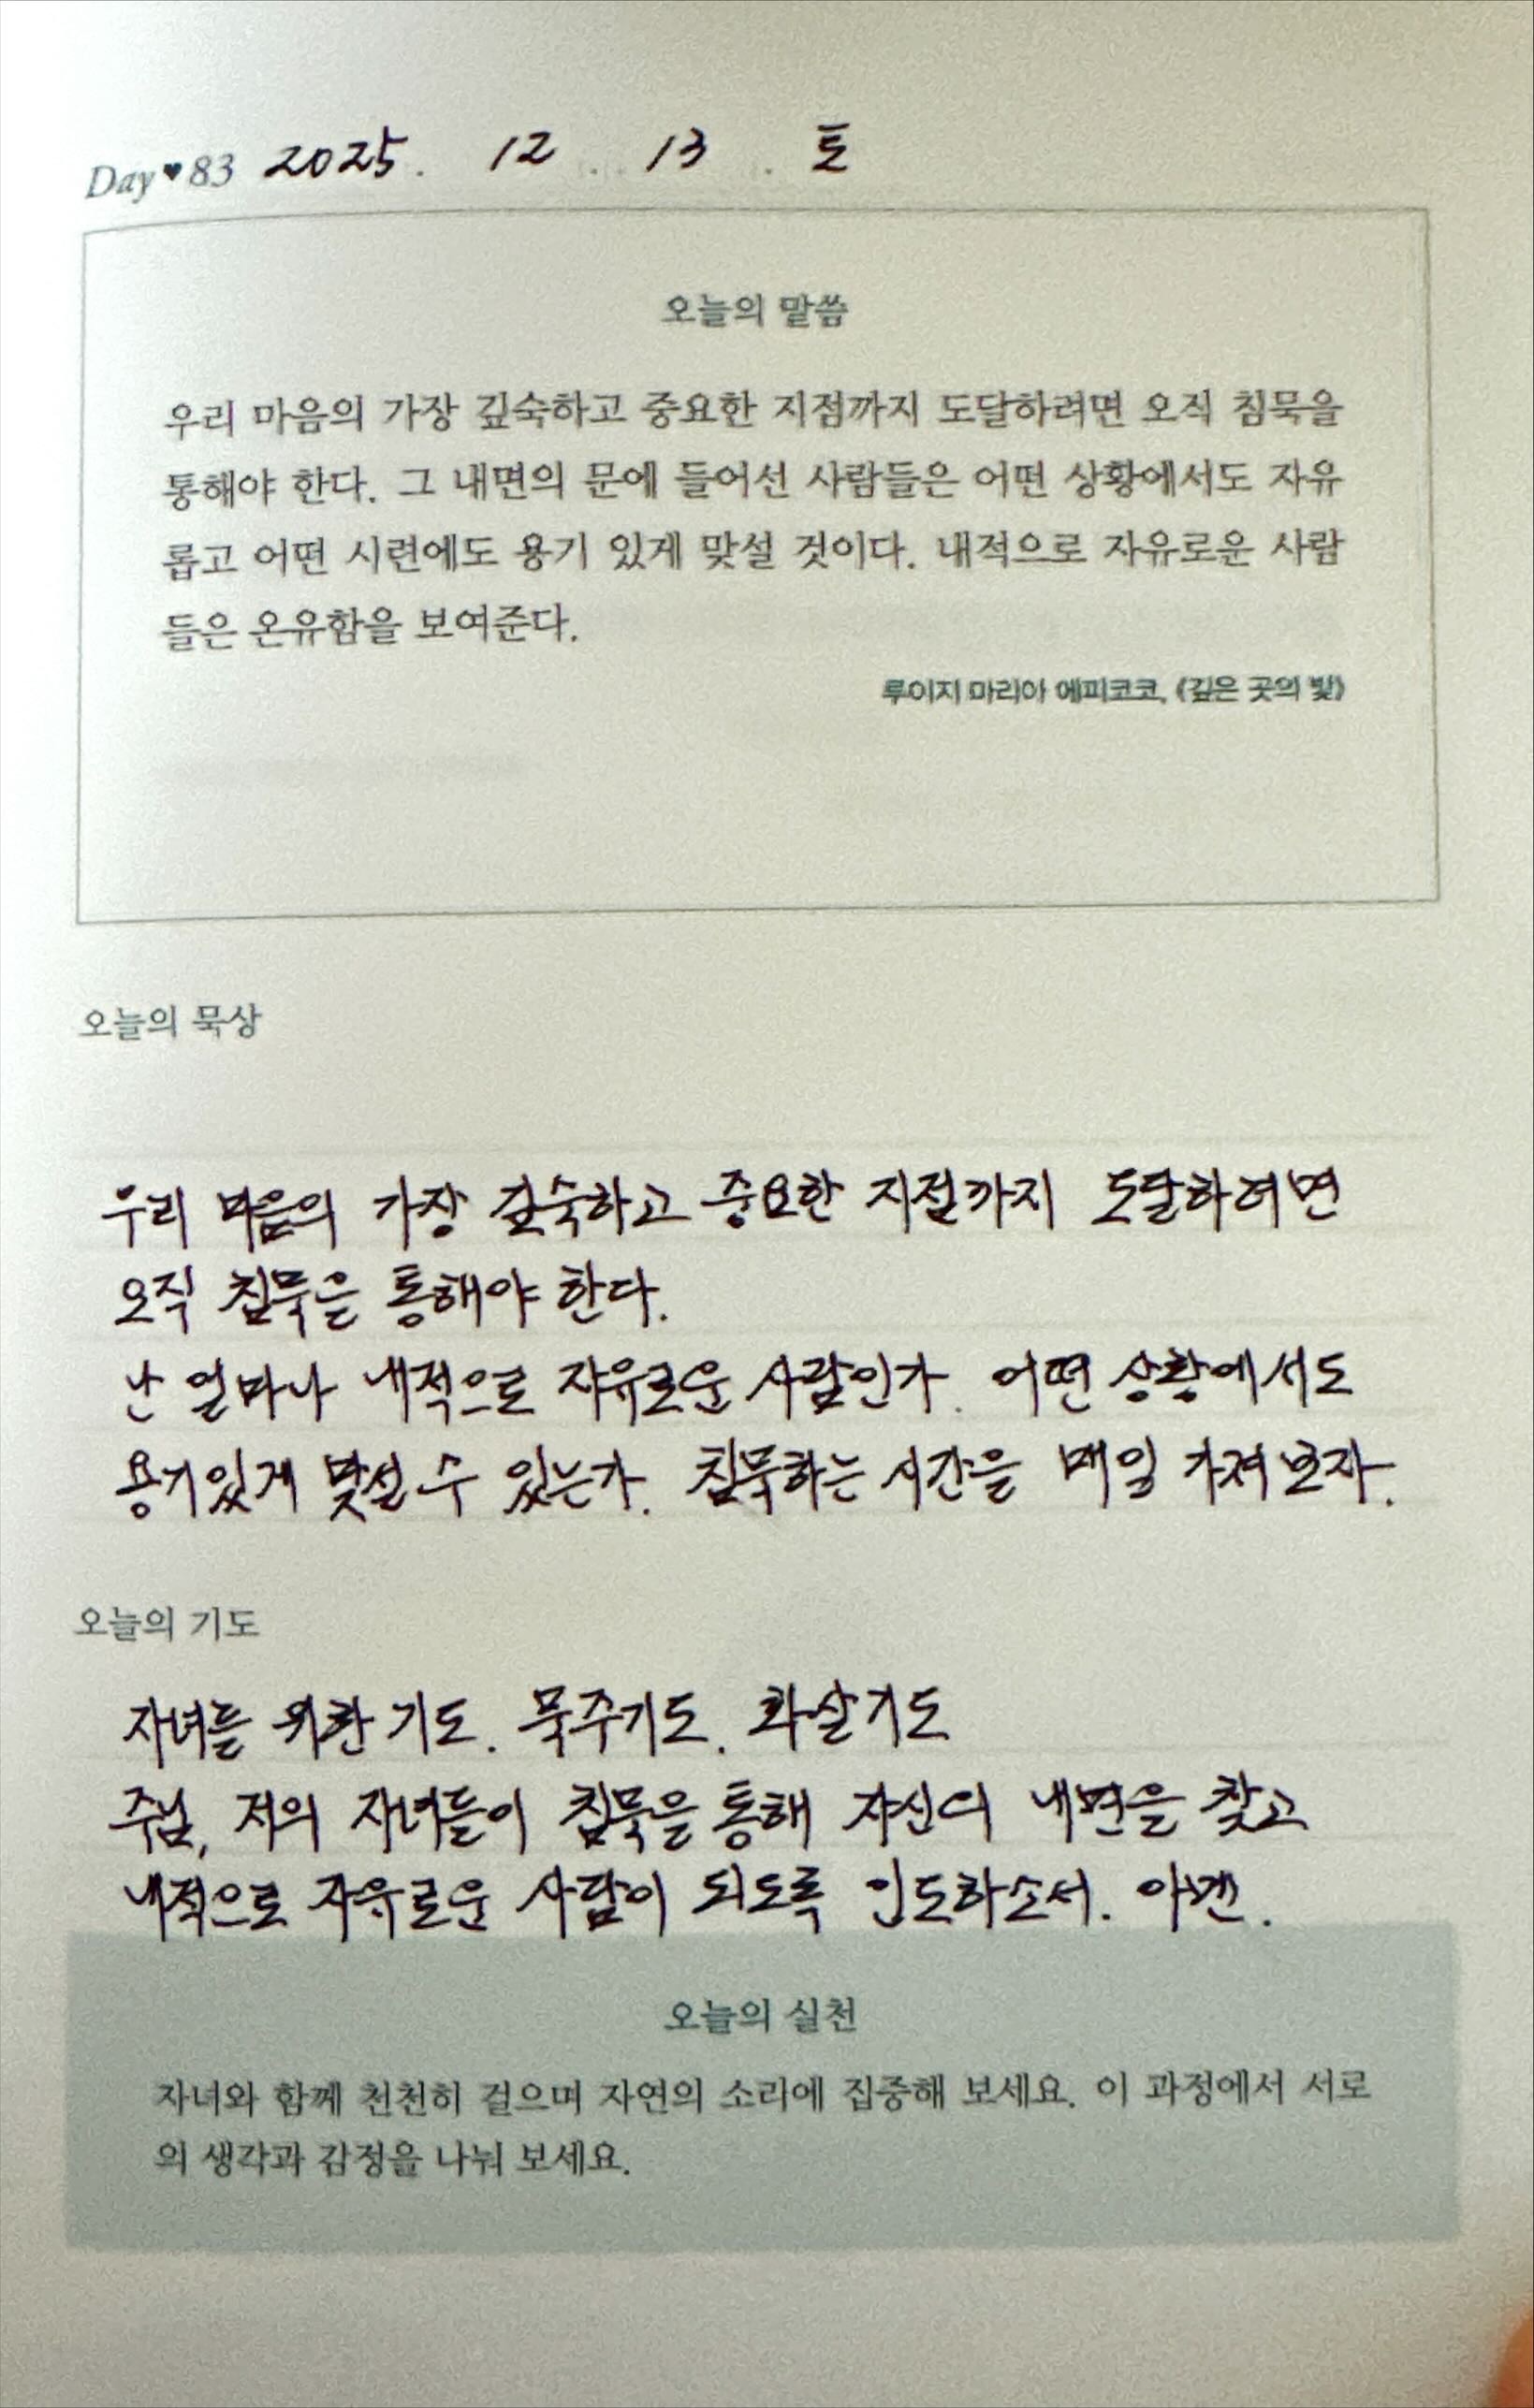 Day♥83 2025. 12. 13. 토
오늘의 말씀
우리 마음의 가장 깊숙하고 중요한 지점까지 도달하려면 오직 침묵을
통해야 한다. 그 내면의 문에 들어선 사람들은 어떤 상황에서도 자유
롭고 어떤 시련에도 용기 있게 맞설 것이다. 내적으로 자유로운 사람
들은 온유함을 보여준다.
루이지 마리아 에피코코, 《깊은 곳의 빛》
오늘의 묵상
우리 마음의 가장 깊숙하고 중요한 지점까지 도달하려면
오직 침묵을 통해야 한다.
난 얼마나 내적으로 자유로운 사람인가. 어떤 상황에서도
용기있게 맞설 수 있는가. 침묵하는 시간을 매일 가져보자.
오늘의 기도
자녀를 위한 기도. 묵주기도. 화살기도
주님, 저의 자녀들이 침묵을 통해 자신의 내면을 찾고
내적으로 자유로운 사람이 되도록 인도하소서. 아멘.
오늘의 실천
자녀와 함께 천천히 걸으며 자연의 소리에 집중해 보세요. 이 과정에서 서로
의 생각과 감정을 나눠 보세요.